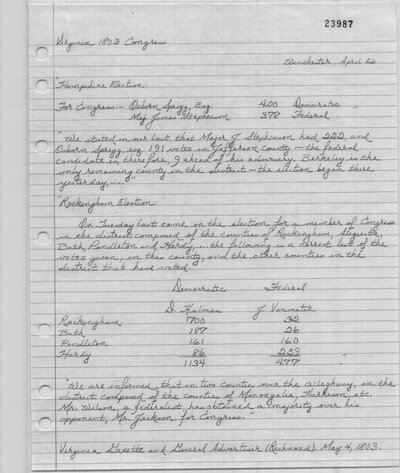 23987
Virginia 1803 Congress
Winchester, April 26
"Hampshire Election.
For Congress:- Osborn Sprigg, Esq. 400 Democratic "
Maj. James Stephenson 378 Federal
"We stated in our last, that Major J. Stephenson had 222, and
Osborn Sprigg, esq. 191 votes in Jefferson county ~ the federal
candidate is, therefore, 9 ahead of his adversary. Berkeley is the
only remaining county in the district ~ the election began there
yesterday....."
"Rockingham Election:
On Tuesday last came on the election for a member of Congress
in the district composed of the counties of Rockingham, Augusta,
Bath, Pendleton and Hardy,.... the following is a correct list of the
votes given, in this county, and the other counties in the
district that have voted.
Democratic Federal
D. Holmes J. Vanmeter
Rockingham 700 32
Bath 187 26
Pendleton 161 160
Hardy 86 259 "
1134 477
"We are informed, that in two counties over the Alleghany, in the
district composed of the counties of Monongalia, Harrison, etc.
Mr. Wilson, a federalist, has obtained a majority over his
opponent, Mr. Jackson, for Congress."
Virginia Gazette and General Advertiser (Richmond). May 4, 1803.